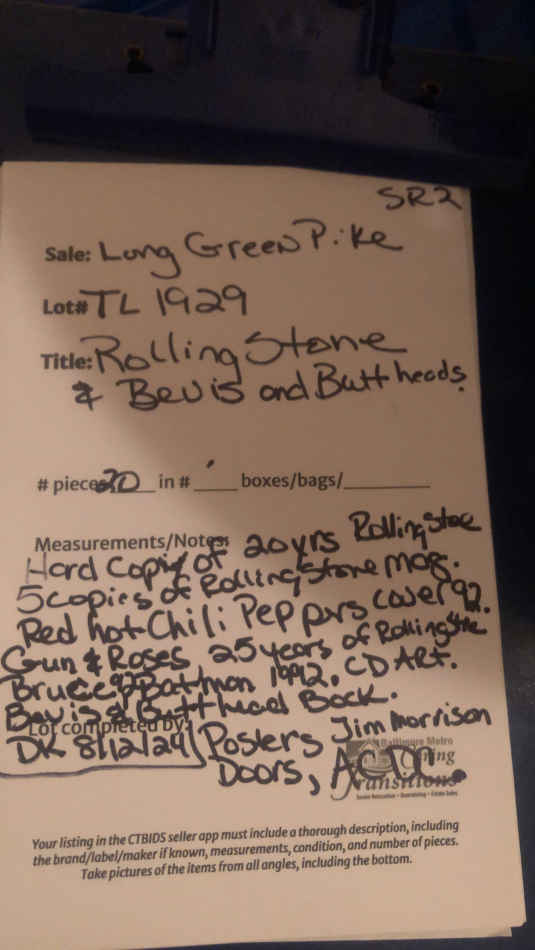 SR2
Sale: Long Green Pike
Lot# TL 1929
Title: Rolling Stone
& Bevis and Buttheads.
# pieces 20 in # ____ boxes/bags/________
Measurements/Notes:
Hard Copy of 20 yrs Rolling Stoe
5 copies of Rolling Stone mag.
Red hot Chili Peppurs cover 92.
Gun & Roses 25 years of Rolling Stone
Bruce 92 Batman 1992. CD ART.
Bevis & Butthead Bock.
Lot completed by:
DK 8/12/24 Posters Jim Morrison
Doors, ACDC.
Baltimore Metro
Caring
Transitions
Senior Relocation • Downsizing • Estate Sales
Your listing in the CTBIDS seller app must include a thorough description, including
the brand/label/maker if known, measurements, condition, and number of pieces.
Take pictures of the items from all angles, including the bottom.